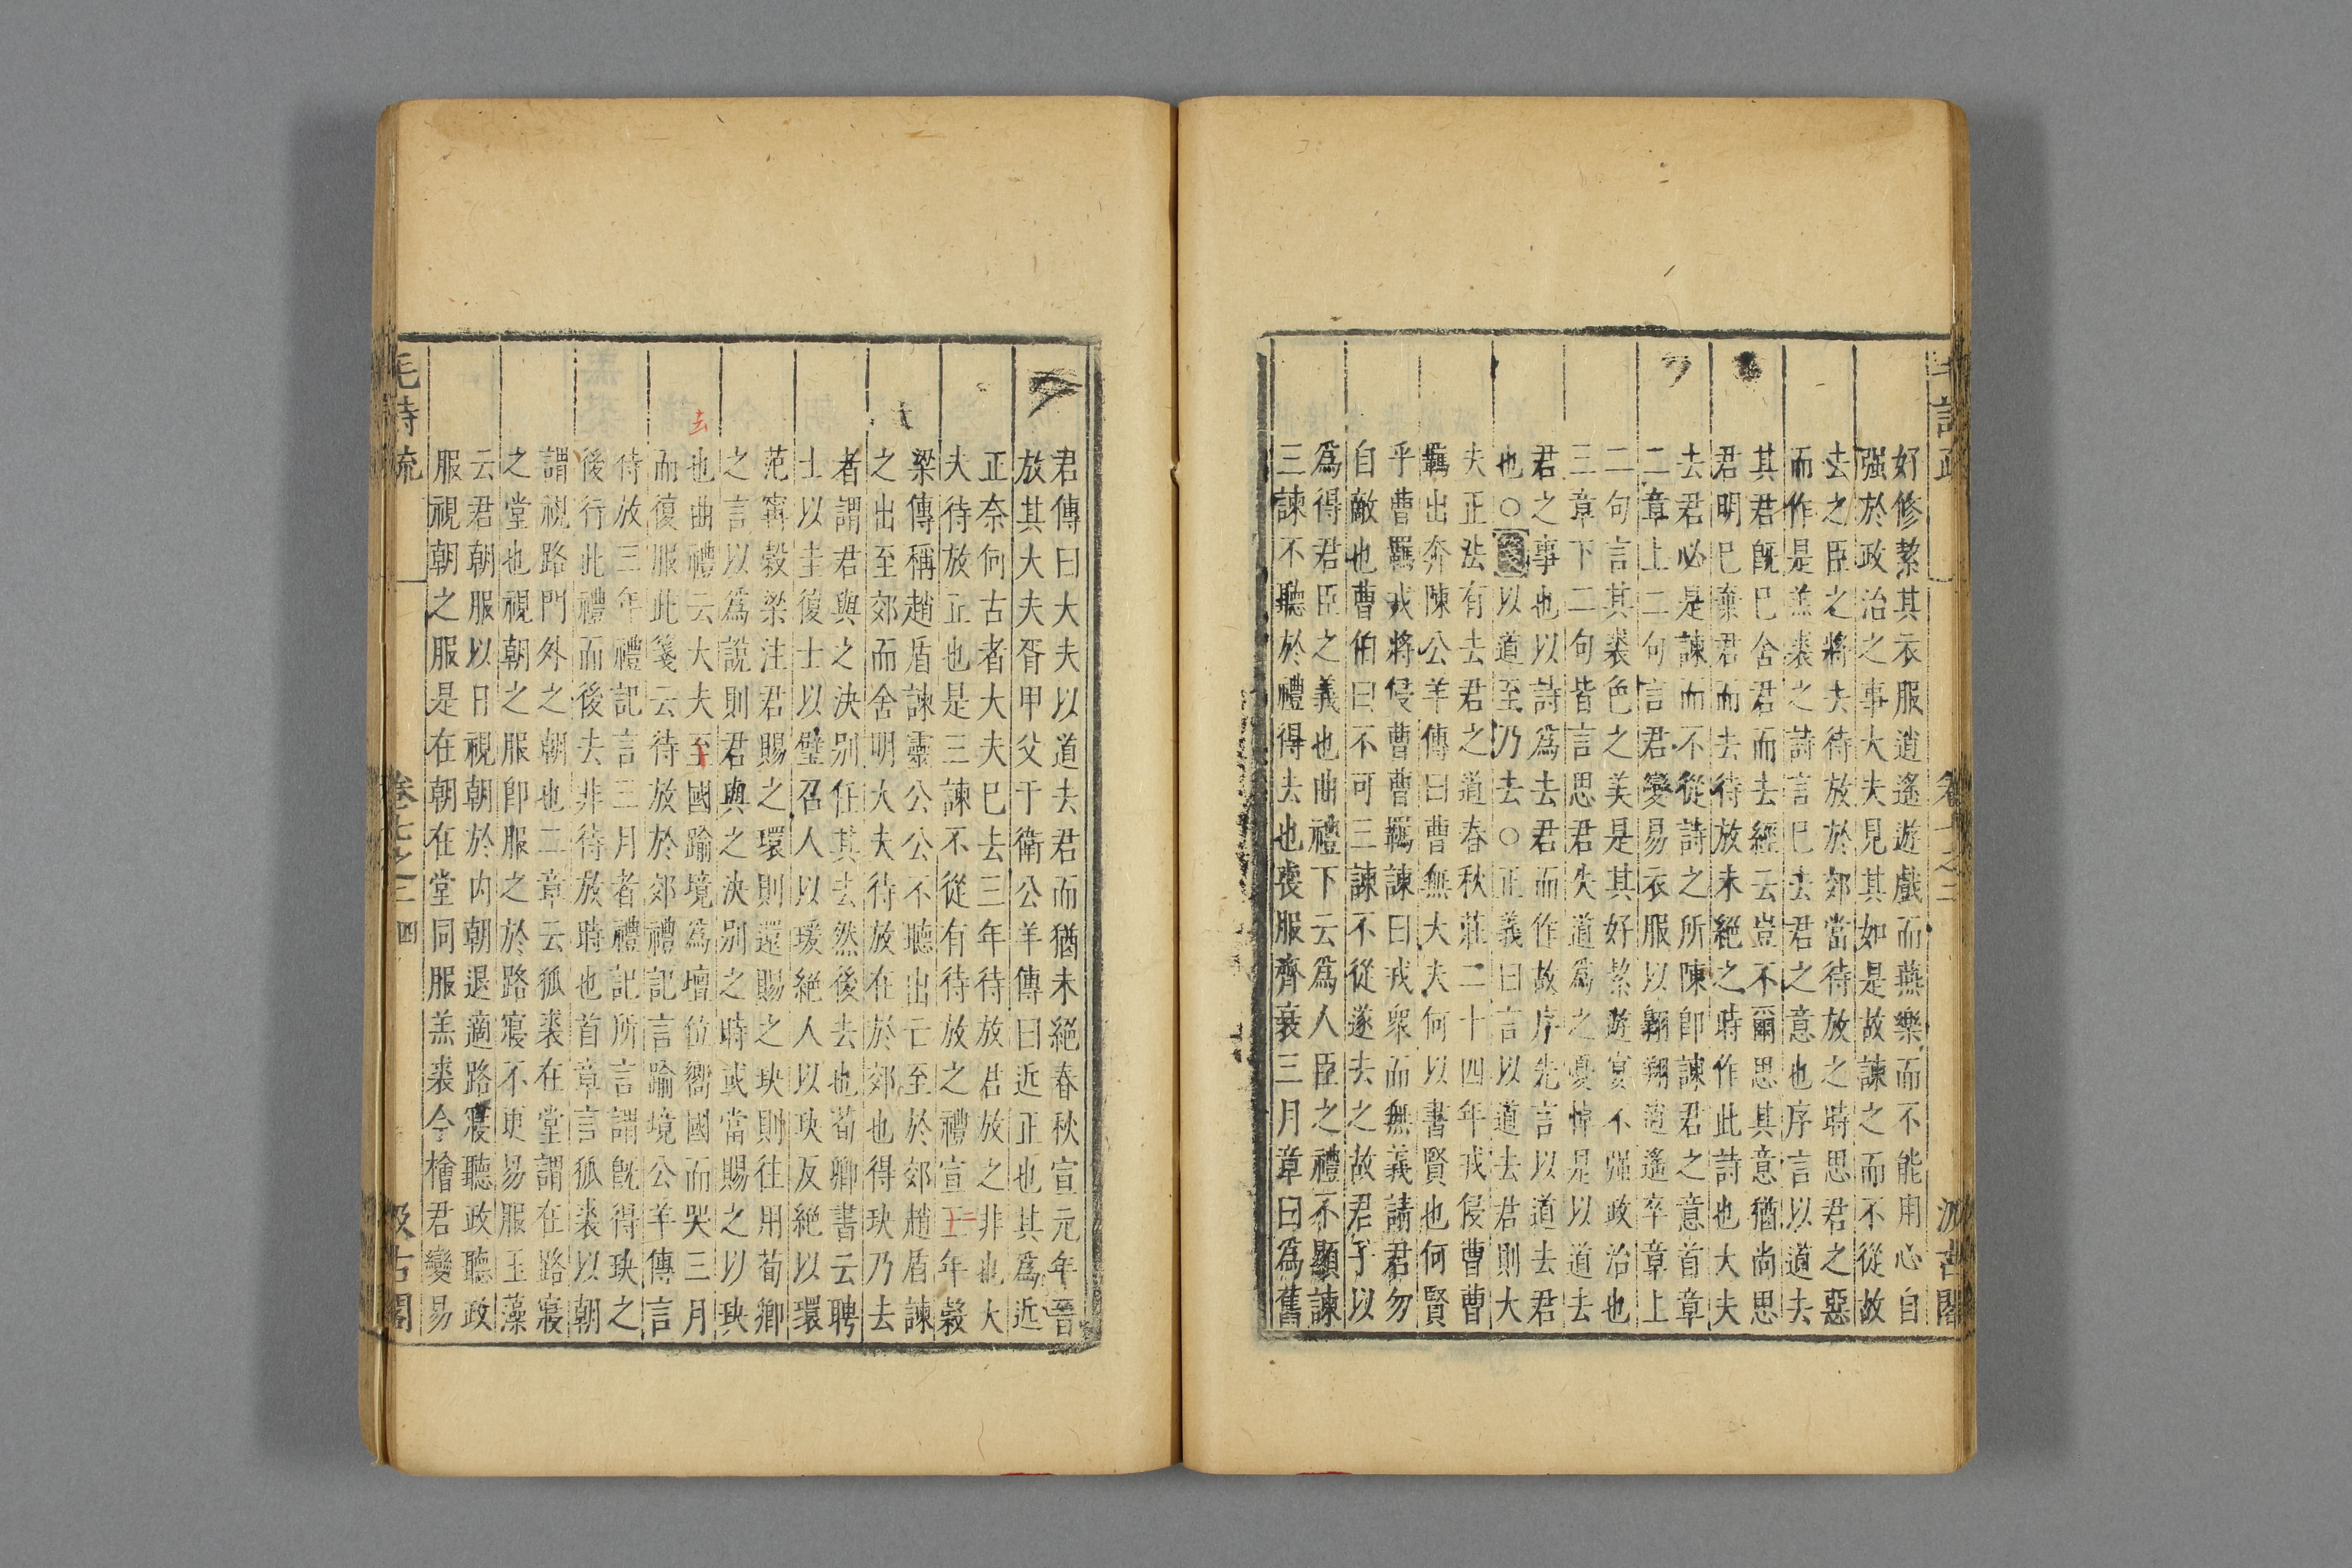 毛詩疏 卷七之三 汲古閣
好修絜其衣服逍遙遊戲而燕樂而不能用心自
强於政治之事大夫見其如是故諫之而不從故
去之臣之將去待放於郊當待放之時思君之惡
而作是羔裘之詩言巳去君之意也序言以道去
其君旣巳舍君而去經云豈不爾思其意猶尚思
君明巳棄君而去待放未絕之時作此詩也大夫
去君必是諫而不從詩之所陳卽諫君之意首章
二章上二句言君變易衣服以翱翔逍遙卒章上
二句言其裘色之美是其好絜遊宴不强政治也
三章下二句皆言思君失道爲之憂悼是以道去
君之事也以詩爲去君而作故序先言以道去君
也○箋以道至乃去○正義曰言以道去君則大
夫正法有去君之道春秋莊二十四年戎侵曹曹
羈出奔陳公羊傳曰曹無大夫何以書賢也何賢
乎曹羈戎將侵曹曹羈諫曰戎衆而無義請君勿
自敵也曹伯曰不可三諫不從遂去之故君子以
爲得君臣之義也曲禮下云爲人臣之禮不顯諫
三諫不聽於禮得去也喪服齊衰三月章曰爲舊
君傳曰大夫以道去君而猶未絕春秋宣元年晉
放其大夫胥甲父于衛公羊傳曰近正也其爲近
正奈何古者大夫巳去三年待放君放之非也大
夫待放正也是三諫不從有待放之禮宣三年穀
二
梁傳稱趙盾諫靈公公不聽出亡至於郊趙盾諫
之出至郊而舍明大夫待放在於郊也得玦乃去
者謂君與之決别任其去然後去也荀卿書云聘
士以圭復士以璧召人以瑗絕人以玦反絕以環
范甯穀梁注君賜之環則還賜之玦則往用荀卿
之言以爲說則君與之決别之時或當賜之以玦
去
也曲禮云大夫至國踰境爲壇位嚮國而哭三月
而復服此箋云待放於郊禮記言踰境公羊傳言
待放三年禮記言三月者禮記所言謂旣得玦之
後行此禮而後去非待放時也首章言狐裘以朝
謂視路門外之朝也二章云狐裘在堂謂在路寢
之堂也視朝之服卽服之於路寢不更易服玉藻
云君朝服以日視朝於内朝退適路寢聽政聽政
服視朝之服是在朝在堂同服羔裘今檜君變易
毛詩疏 卷七之三 四 汲古閣